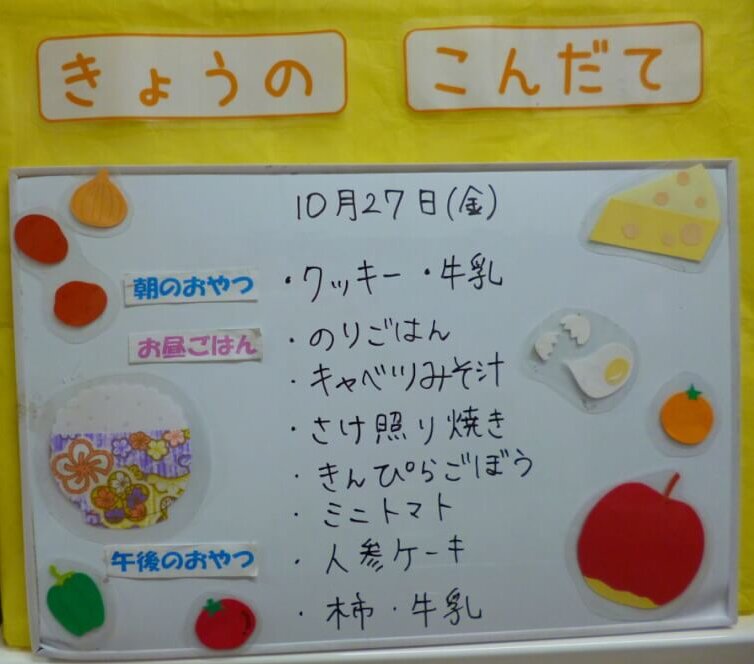 きょうの こんだて
10月27日(金)
朝のおやつ ・クッキー ・牛乳
お昼ごはん ・のりごはん
・キャベツみそ汁
・さけ照り焼き
・きんぴらごぼう
・ミニトマト
午後のおやつ ・人参ケーキ
・柿・牛乳